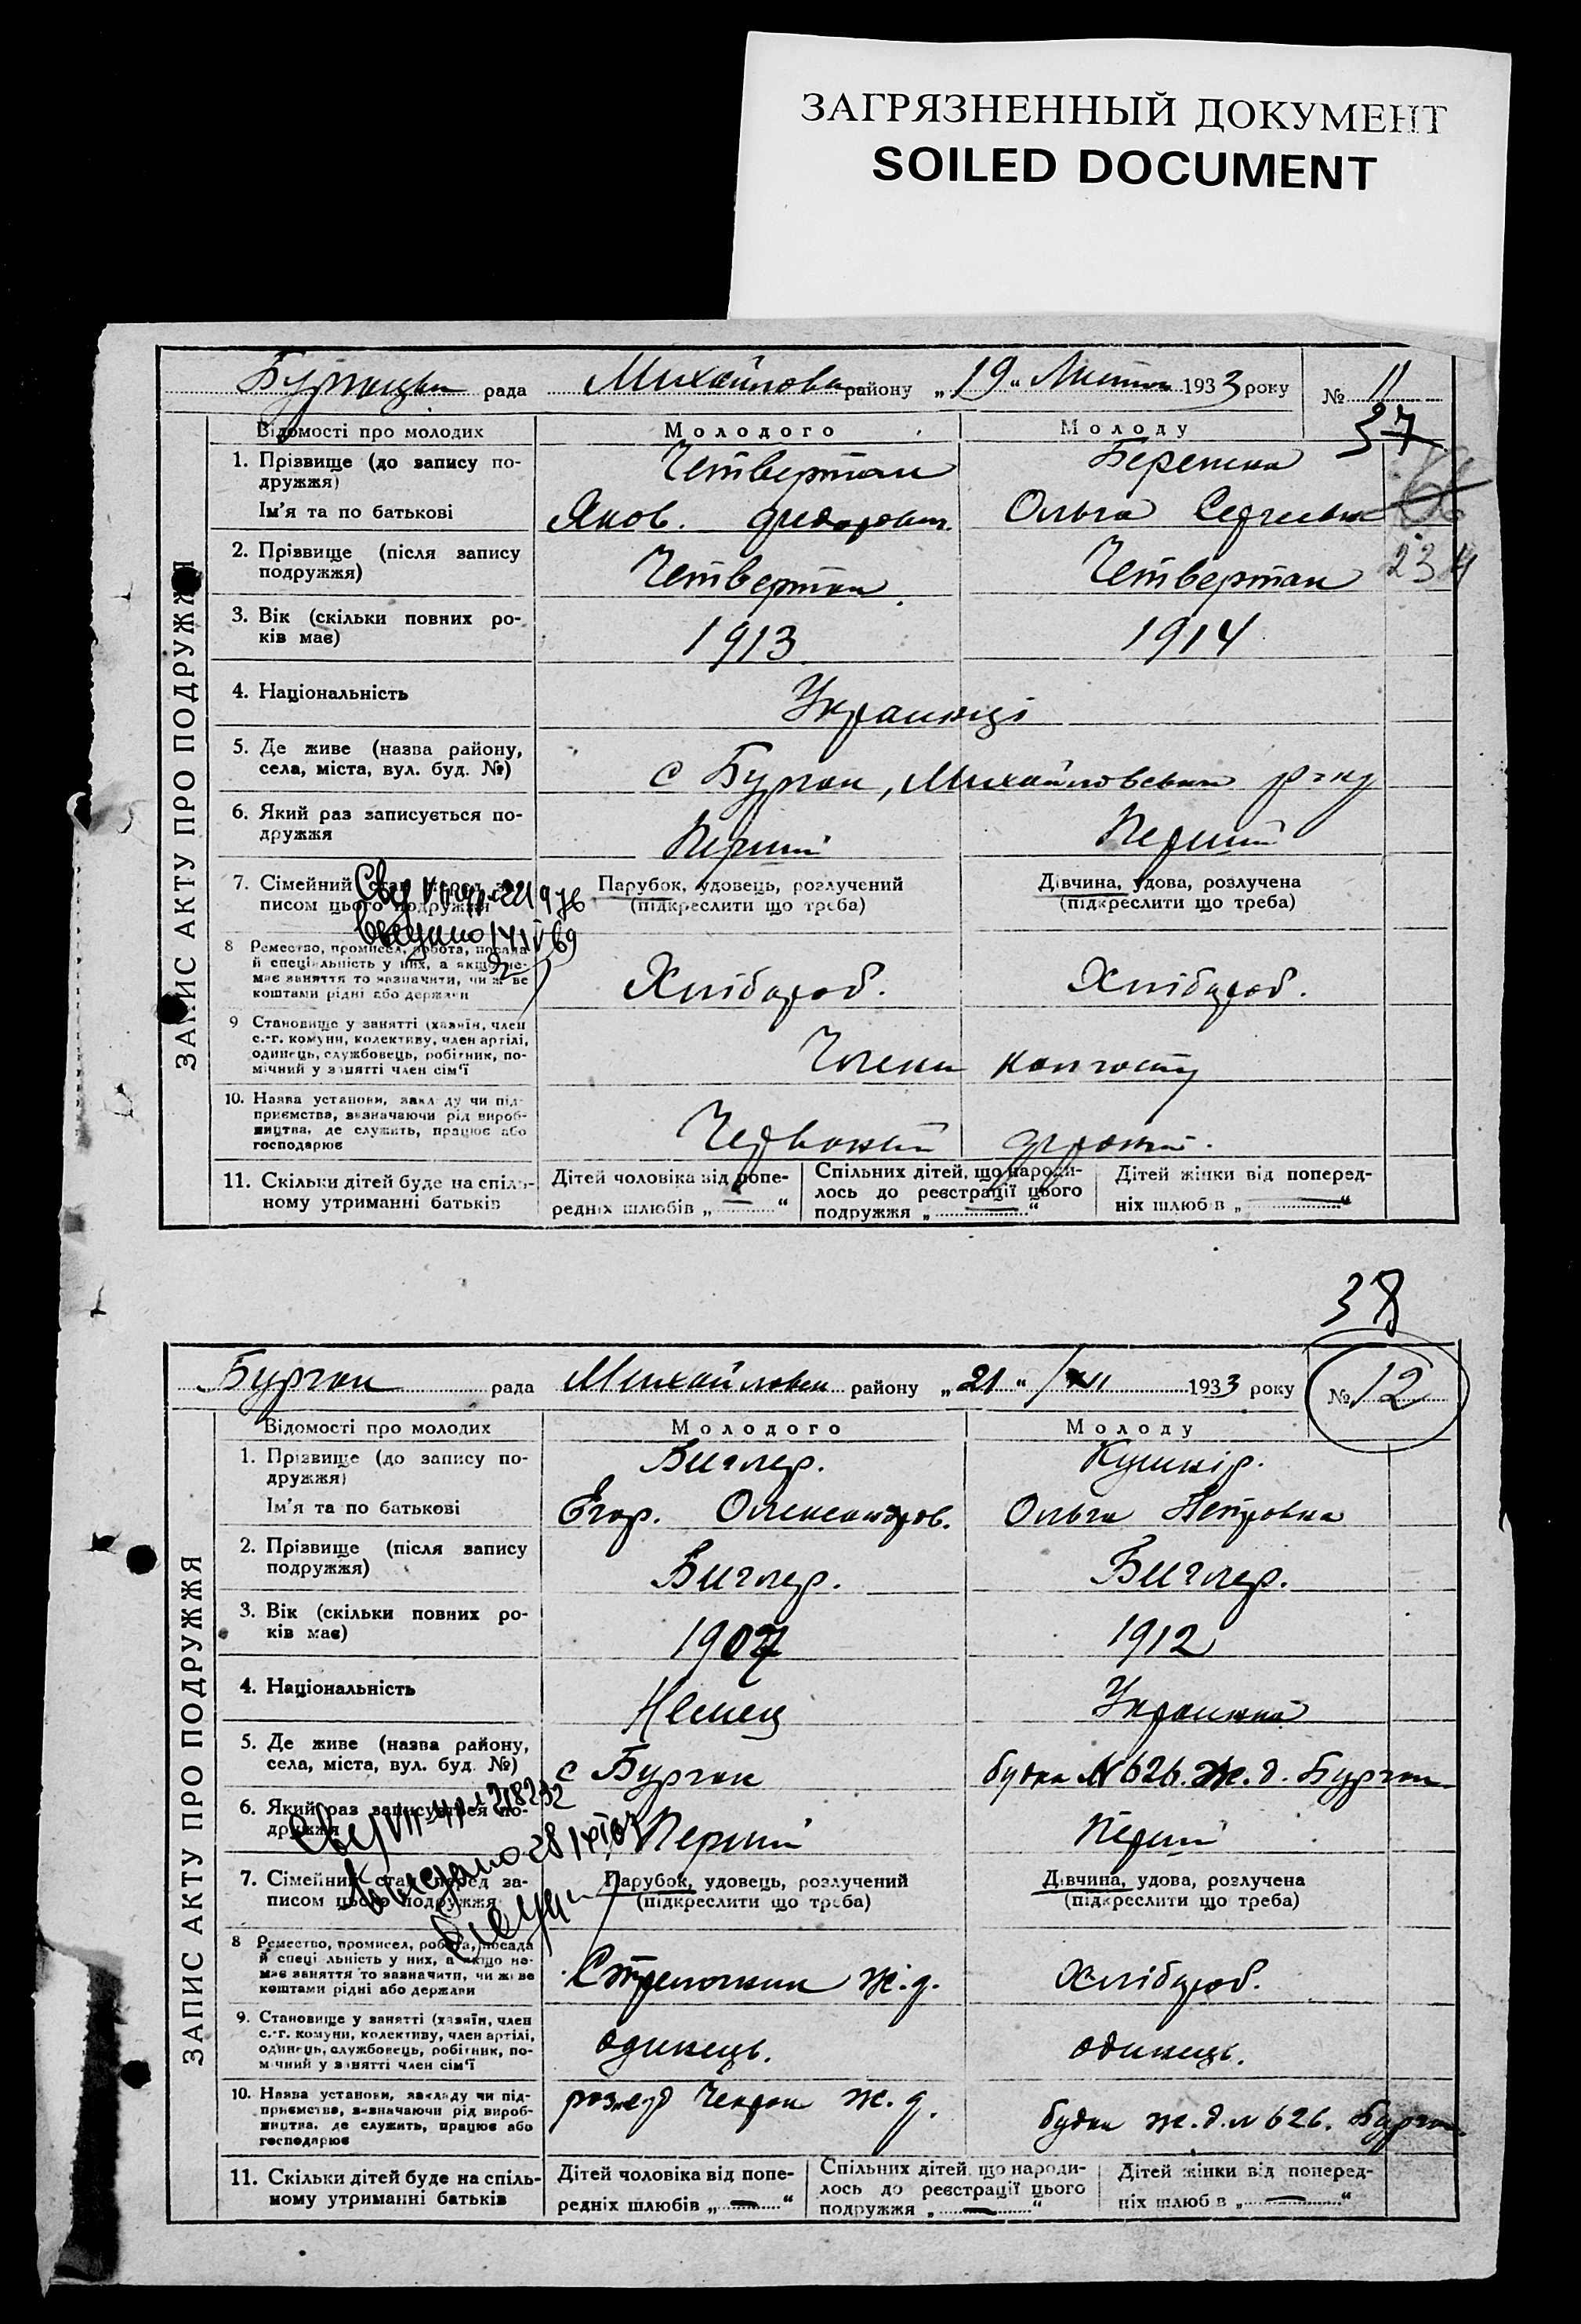 ЗАГРЯЗНЕННЫЙ ДОКУМЕНТ
SOILED DOCUMENT
рада района „19“ 1933 року № 11
37
ЗАПИС АКТУ ПРО ПОДРУЖЖЯ
Відомості про молодих Молодого Молоду
1. Прізвище (до запису по-
дружжя)
Ім'я та по батькові Яков. Ольга
2. Прізвище (після запису
подружжя)
234
3. Вік (скільки повних ро-
ків має) 1913 1914
4. Національність Украинці
5. Де живе (назва району,
села, міста, вул. буд. №) с Бурчак, р-ну
6. Який раз записується по-
дружжя Перший Перший
7. Сімейний стан перед за-
писом цього подружжя
Парубок, удовець, розлучений
(підкреслити що треба)
Дівчина, удова, розлучена
(підкреслити що треба)
8 Ремество, промисел, робота, посада
й спеціальність у них, а якщо не-
має заняття то зазначити, чи живе
коштами рідні або держави Хлібороб. Хлібороб.
9 Становище у занятті (хазяїн, член
с.-г. комуни, колективу, член артілі,
одинець, службовець, робітник, по-
мічний у занятті член сім'ї Члени
10. Назва установи, закладу чи під-
приємства, зазначаючи рід вироб-
ництва, де служить, працює або
господарює Червоний
11. Скільки дітей буде на спіль-
ному утриманні батьків
Дітей чоловіка від попе-
редніх шлюбів „ — “
Спільних дітей, що народи-
лось до реєстрації цього
подружжя „ — “
Дітей жінки від поперед-
ніх шлюбів „ — “
38
Бурчак рада району „21“ 1933 року № 12
ЗАПИС АКТУ ПРО ПОДРУЖЖЯ
Відомості про молодих Молодого Молоду
1. Прізвище (до запису по-
дружжя) Биглер. Кушнір.
Ім'я та по батькові Егор. Олександров. Ольга Петровна
2. Прізвище (після запису
подружжя) Биглер. Биглер.
3. Вік (скільки повних ро-
ків має) 1907 1912
4. Національність Немец
5. Де живе (назва району,
села, міста, вул. буд. №) с Бурчак будка № 626. Ж. д. Бурчак
6. Який раз записується по-
дружжя Перший Перший
7. Сімейний стан перед за-
писом цього подружжя
Парубок, удовець, розлучений
(підкреслити що треба)
Дівчина, удова, розлучена
(підкреслити що треба)
8 Ремество, промисел, робота, посада
й спеціальність у них, а якщо не-
має заняття то зазначити, чи живе
коштами рідні або держави ж.д. Хлібороб.
9. Становище у занятті (хазяїн, член
с.-г. комуни, колективу, член артілі,
одинець, службовець, робітник, по-
мічний у занятті член сім'ї одинець. одинець.
10. Назва установи, закладу чи під-
приємства, зазначаючи рід вироб-
ництва, де служить, працює або
господарює ж. д. будка ж. д. № 626. Бурчак.
11. Скільки дітей буде на спіль-
ному утриманні батьків
Дітей чоловіка від попе-
редніх шлюбів „ — “
Спільних дітей, що народи-
лось до реєстрації цього
подружжя „ — “
Дітей жінки від поперед-
ніх шлюбів „ — “